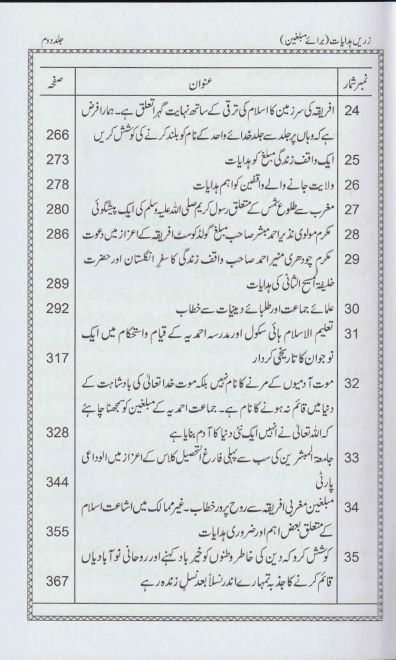 زریں ہدایات (برائے مبلغین) جلد دوم
نمبر شمار عنوان صفحہ
24 افریقہ کی سرزمین کا اسلام کی ترقی کے ساتھ نہایت گہرا تعلق ہے۔ ہمارا فرض
ہے کہ وہاں پر جلد سے جلد خدائے واحد کے نام کو بلند کرنے کی کوشش کریں 266
25 ایک واقف زندگی مبلغ کو ہدایات 273
26 ولایت جانے والے واقفین کو اہم ہدایات 278
27 مغرب سے طلوع شمس کے متعلق رسول کریم صلی اللہ علیہ وسلم کی ایک پیشگوئی 280
28 مکرم مولوی نذیر احمد مبشر صاحب مبلغ گولڈ کوسٹ افریقہ کے اعزاز میں دعوت 286
29 مکرم چودھری منیر احمد صاحب واقف زندگی کا سفر انگلستان اور حضرت
خلیفۃ المسیح الثانی کی ہدایات 289
30 علمائے جماعت اور طلبائے دینیات سے خطاب 292
31 تعلیم الاسلام ہائی سکول اور مدرسہ احمدیہ کے قیام و استحکام میں ایک
نوجوان کا تاریخی کردار 317
32 موت آدمیوں کے مرنے کا نام نہیں بلکہ موت خدا تعالیٰ کی بادشاہت کے
دنیا میں قائم نہ ہونے کا نام ہے۔ جماعت احمدیہ کے مبلغین کو سمجھنا چاہئے
کہ اللہ تعالیٰ نے انہیں ایک نئی دنیا کا آدم بنایا ہے 328
33 جامعۃ المبشرین کی سب سے پہلی فارغ التحصیل کلاس کے اعزاز میں الوداعی
پارٹی 344
34 مبلغین مغربی افریقہ سے روح پرور خطاب۔ غیر ممالک میں اشاعت اسلام
کے متعلق بعض اہم اور ضروری ہدایات 355
35 کوشش کرو کہ دین کی خاطر وطنوں کو خیر باد کہنے اور روحانی نو آبادیاں
قائم کرنے کا جذبہ تمہارے اندر نسلاً بعد نسلٍ زندہ رہے 367